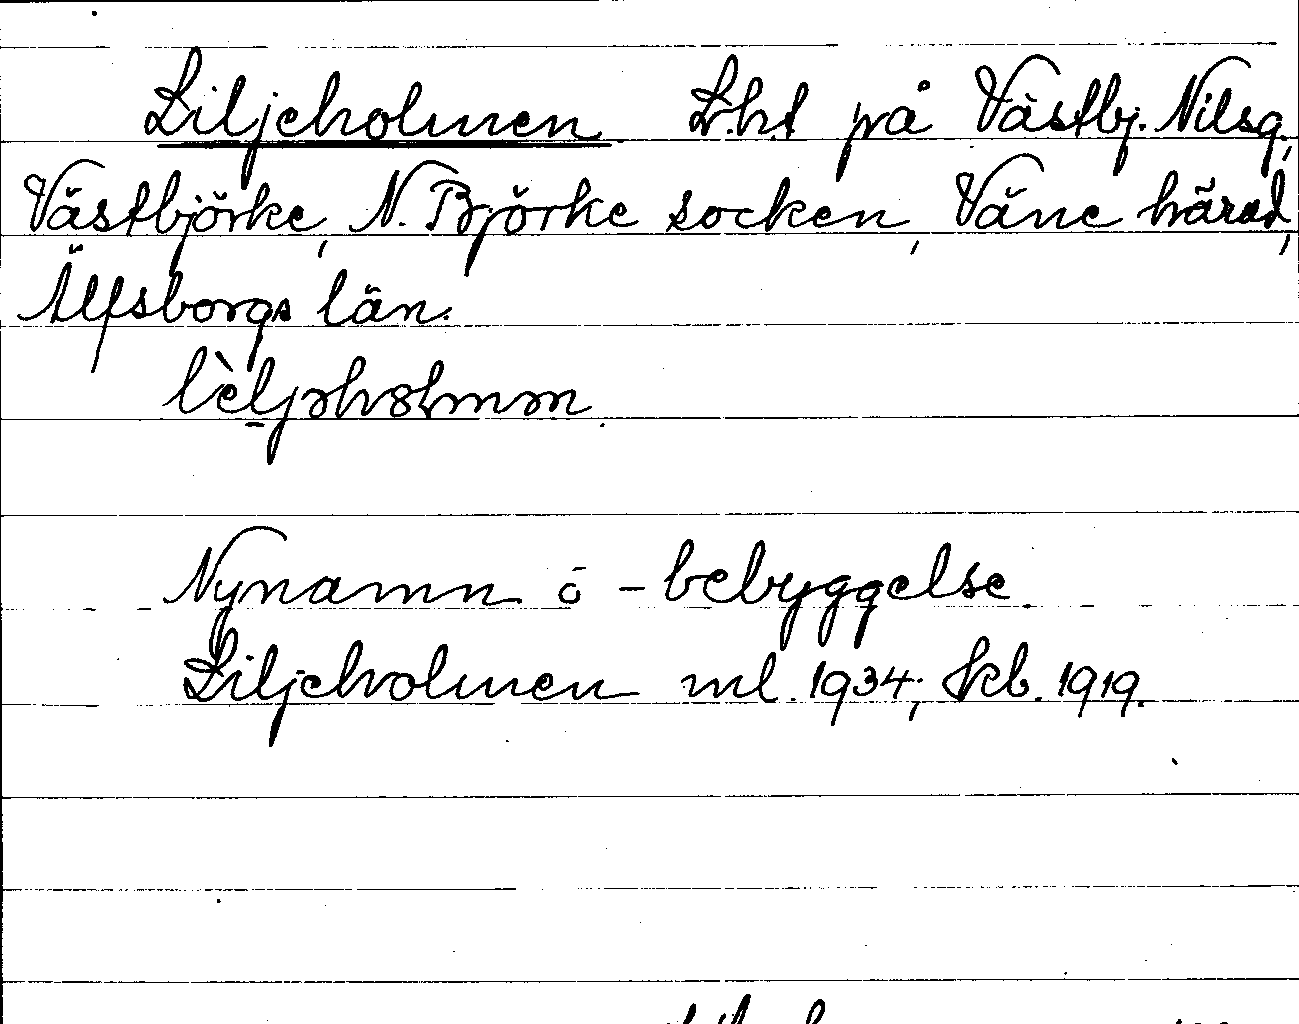 Liljeholmen L.h.t på Västbj. Nilsg.,
Västbjörke, N. Björke socken, Väne härad,
Älfsborgs län.
Nynamn å - bebyggelse
Liljeholmen ml. 1934; kb. 1919.